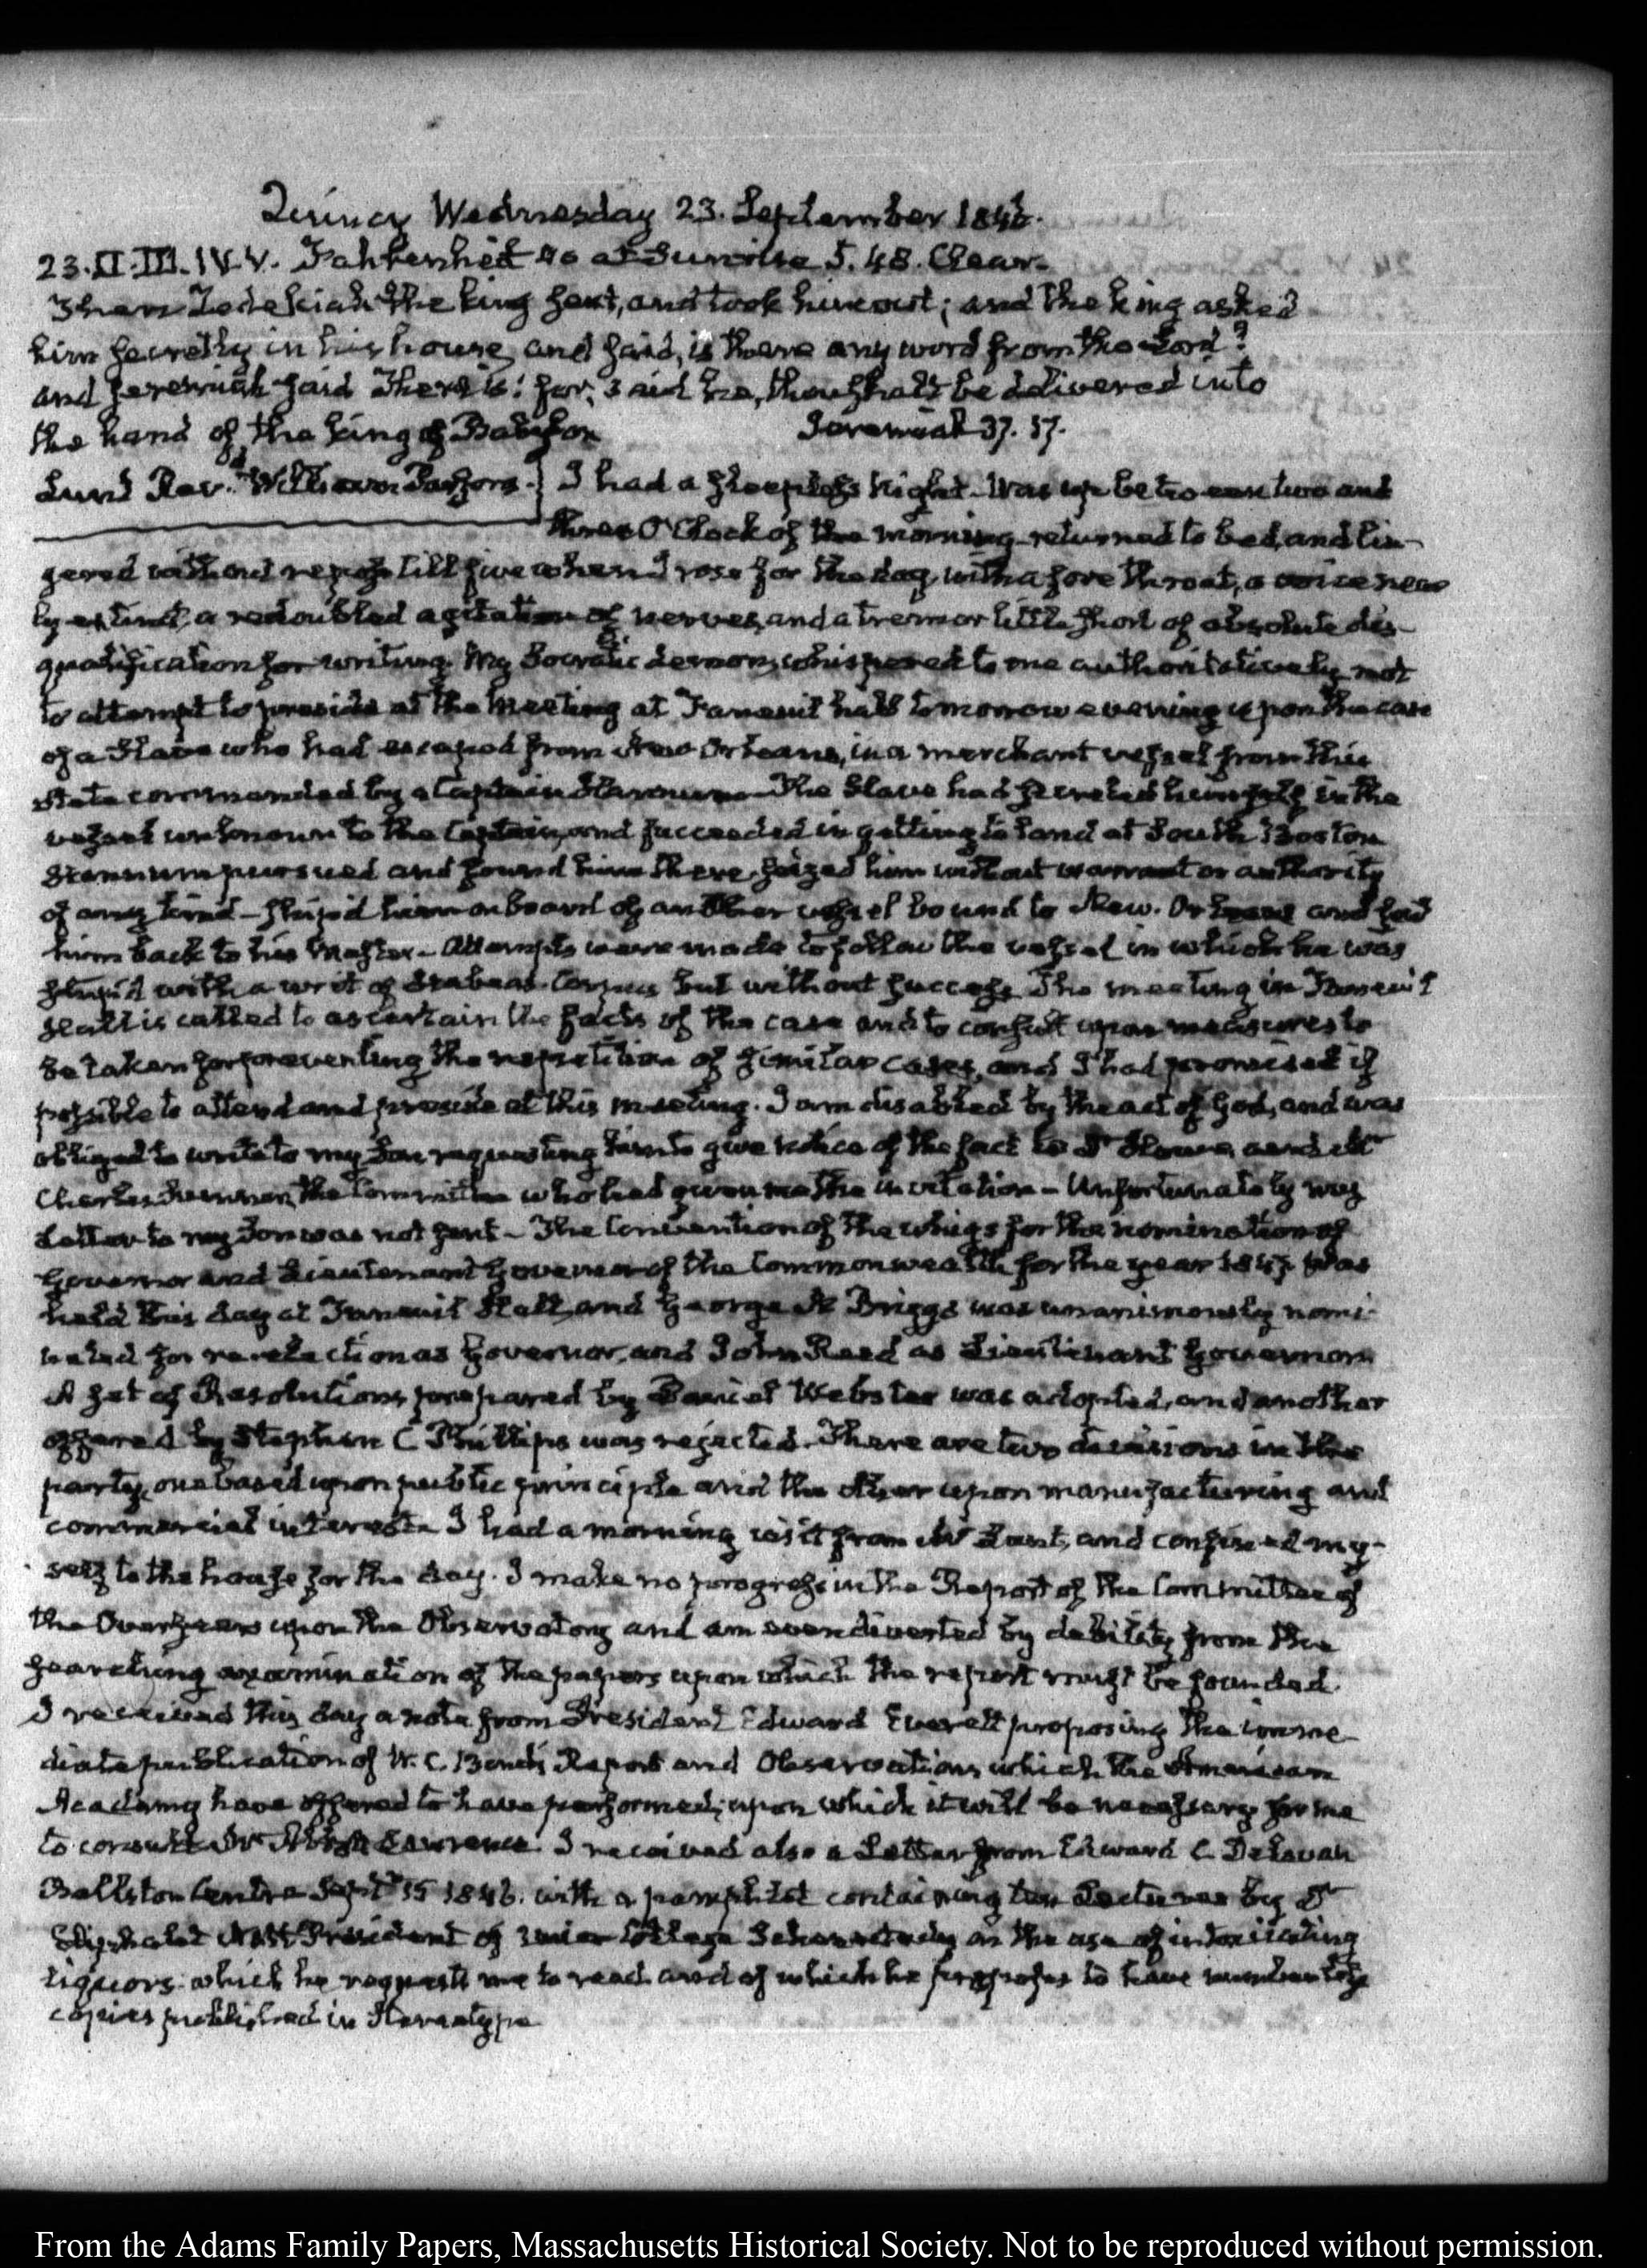 Quincy Wednesday 23. September 1846.
23. II. III. IV. V. Fahrenheit 40 at Sunrise 5.48. Clear.
Then Zedekiah the king sent, and took him out; and the king asked
him secretly in his house, and said, is there any word from the Lord?
and Jeremiah said There is: for, said he, thou shalt be delivered into
the hand of the king of Babylon Jeremiah 37. 17.
Lunt Revd. William Parsons. I had a sleepless night. Was up between two and
three O'Clock of the morning returned to bed, and lin-
gered without repose till five when I rose for the day, with a sore throat, a voice near
ly extinct, a redoubled agitation of nerves, and a tremor little short of absolute dis-
qualification for writing. My Socratic demon, whispered to me authoritatively not
to attempt to preside at the Meeting at Faneuil hall tomorrow evening upon the case
of a Slave who had escaped from New Orleans, in a merchant vessel from this
State commanded by a Captain Hannum. The Slave had secreted himself in the
vessel unknown to the Captain, and succeeded in getting to land at South Boston
Hannum pursued and found him there, seized him without warrant or authority
of any kind - shipp'd him on board of another vessel bound to New. Orleans and sent
him back to his Master - Attempts were made to follow the vessel in which he was
shipp'd with a writ of Habeas Corpus but without success. The meeting in Faneuil
Hall is called to ascertain the facts of the case and to consult upon measures to
be taken for preventing the repetition of similar cases, and I had promised if
possible to attend and preside at this meeting. I am disabled by the act of God, and was
obliged to write to my Son requesting him to give notice of the fact to Dr Howe, and Mr
Charles Sumner, the Committee who had given me the invitation - Unfortunately my
Letter to my Son was not sent - The Convention of the whigs for the nomination of
Governor and Lieutenant Governor of the Commonwealth for the year 1847 was
held this day at Faneuil Hall, and George N Briggs was unanimously nomi-
nated for re-election as Governor, and John Reed as Lieutenant Governor.
A set of Resolutions prepared by Daniel Webster was adopted, and another
offered by Stephen C Phillips was rejected. There are two divisions in the
party, one based upon public principle and the other upon manufacturing and
commercial interests. I had a morning visit from Mr Lunt, and confined my-
self to the house for the day. I make no progress in the Report of the Committee of
the Overseers upon the Observatory and am even diverted by debility from the
searching examination of the papers upon which the report must be founded.
I received this day a note from President Edward Everett proposing the imme-
diate publication of W. C. Bond's Report and Observations which the American
Academy have offered to have performed; upon which it will be necessary for me
to consult Mr Abbott Lawrence. I received also a Letter from Edward C Delavan
Ballston Centre Septr 15 1846. with a pamphlet containing ten Lectures by Dr
Eliphalet Nott President of Union College Schenectady on the use of intoxicating
liquors: which he requests me to read and of which he proposes to have
copies published in Stereotype
From the Adams Family Papers, Massachusetts Historical Society. Not to be reproduced without permission.